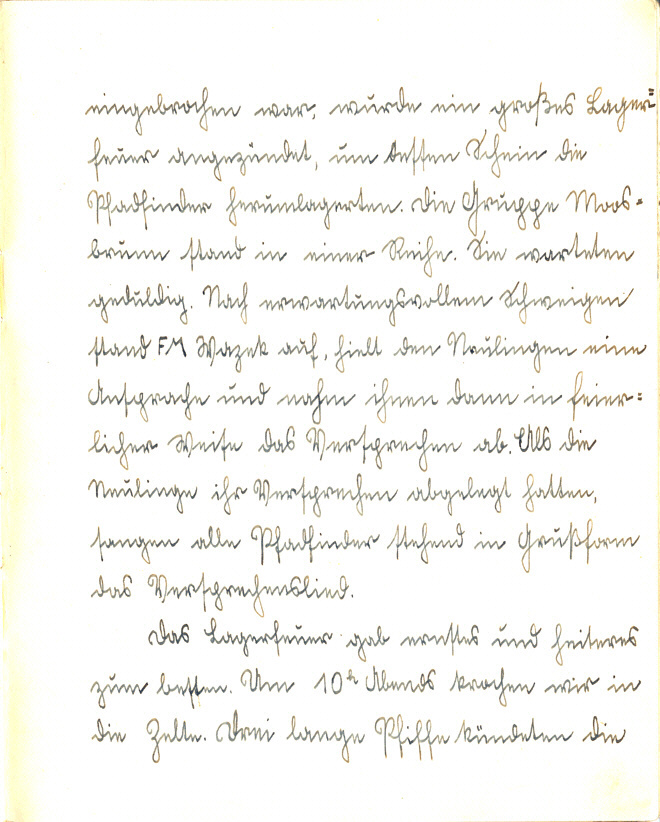 eingebrochen war, wurde ein großes Lager=
feuer angezündet, um dessen Schein die
Pfadfinder herumlagerten. Die Gruppe Moos=
brunn stand in einer Reihe. Sie warteten
geduldig. Nach erwartungsvollem Schweigen
stand FM Wazek auf, hielt den Neulingen eine
Ansprache und nahm ihnen dann in feier=
licher Weise das Versprechen ab. Als die
Neulinge ihr Versprechen abgelegt hatten,
sangen alle Pfadfinder stehend in Grußform
das Versprechenslied.
Das Lagerfeuer gab ernstes und heiteres
zum besten. Um 10h Abends krochen wir in
die Zelte. Drei lange Pfiffe kündeten die